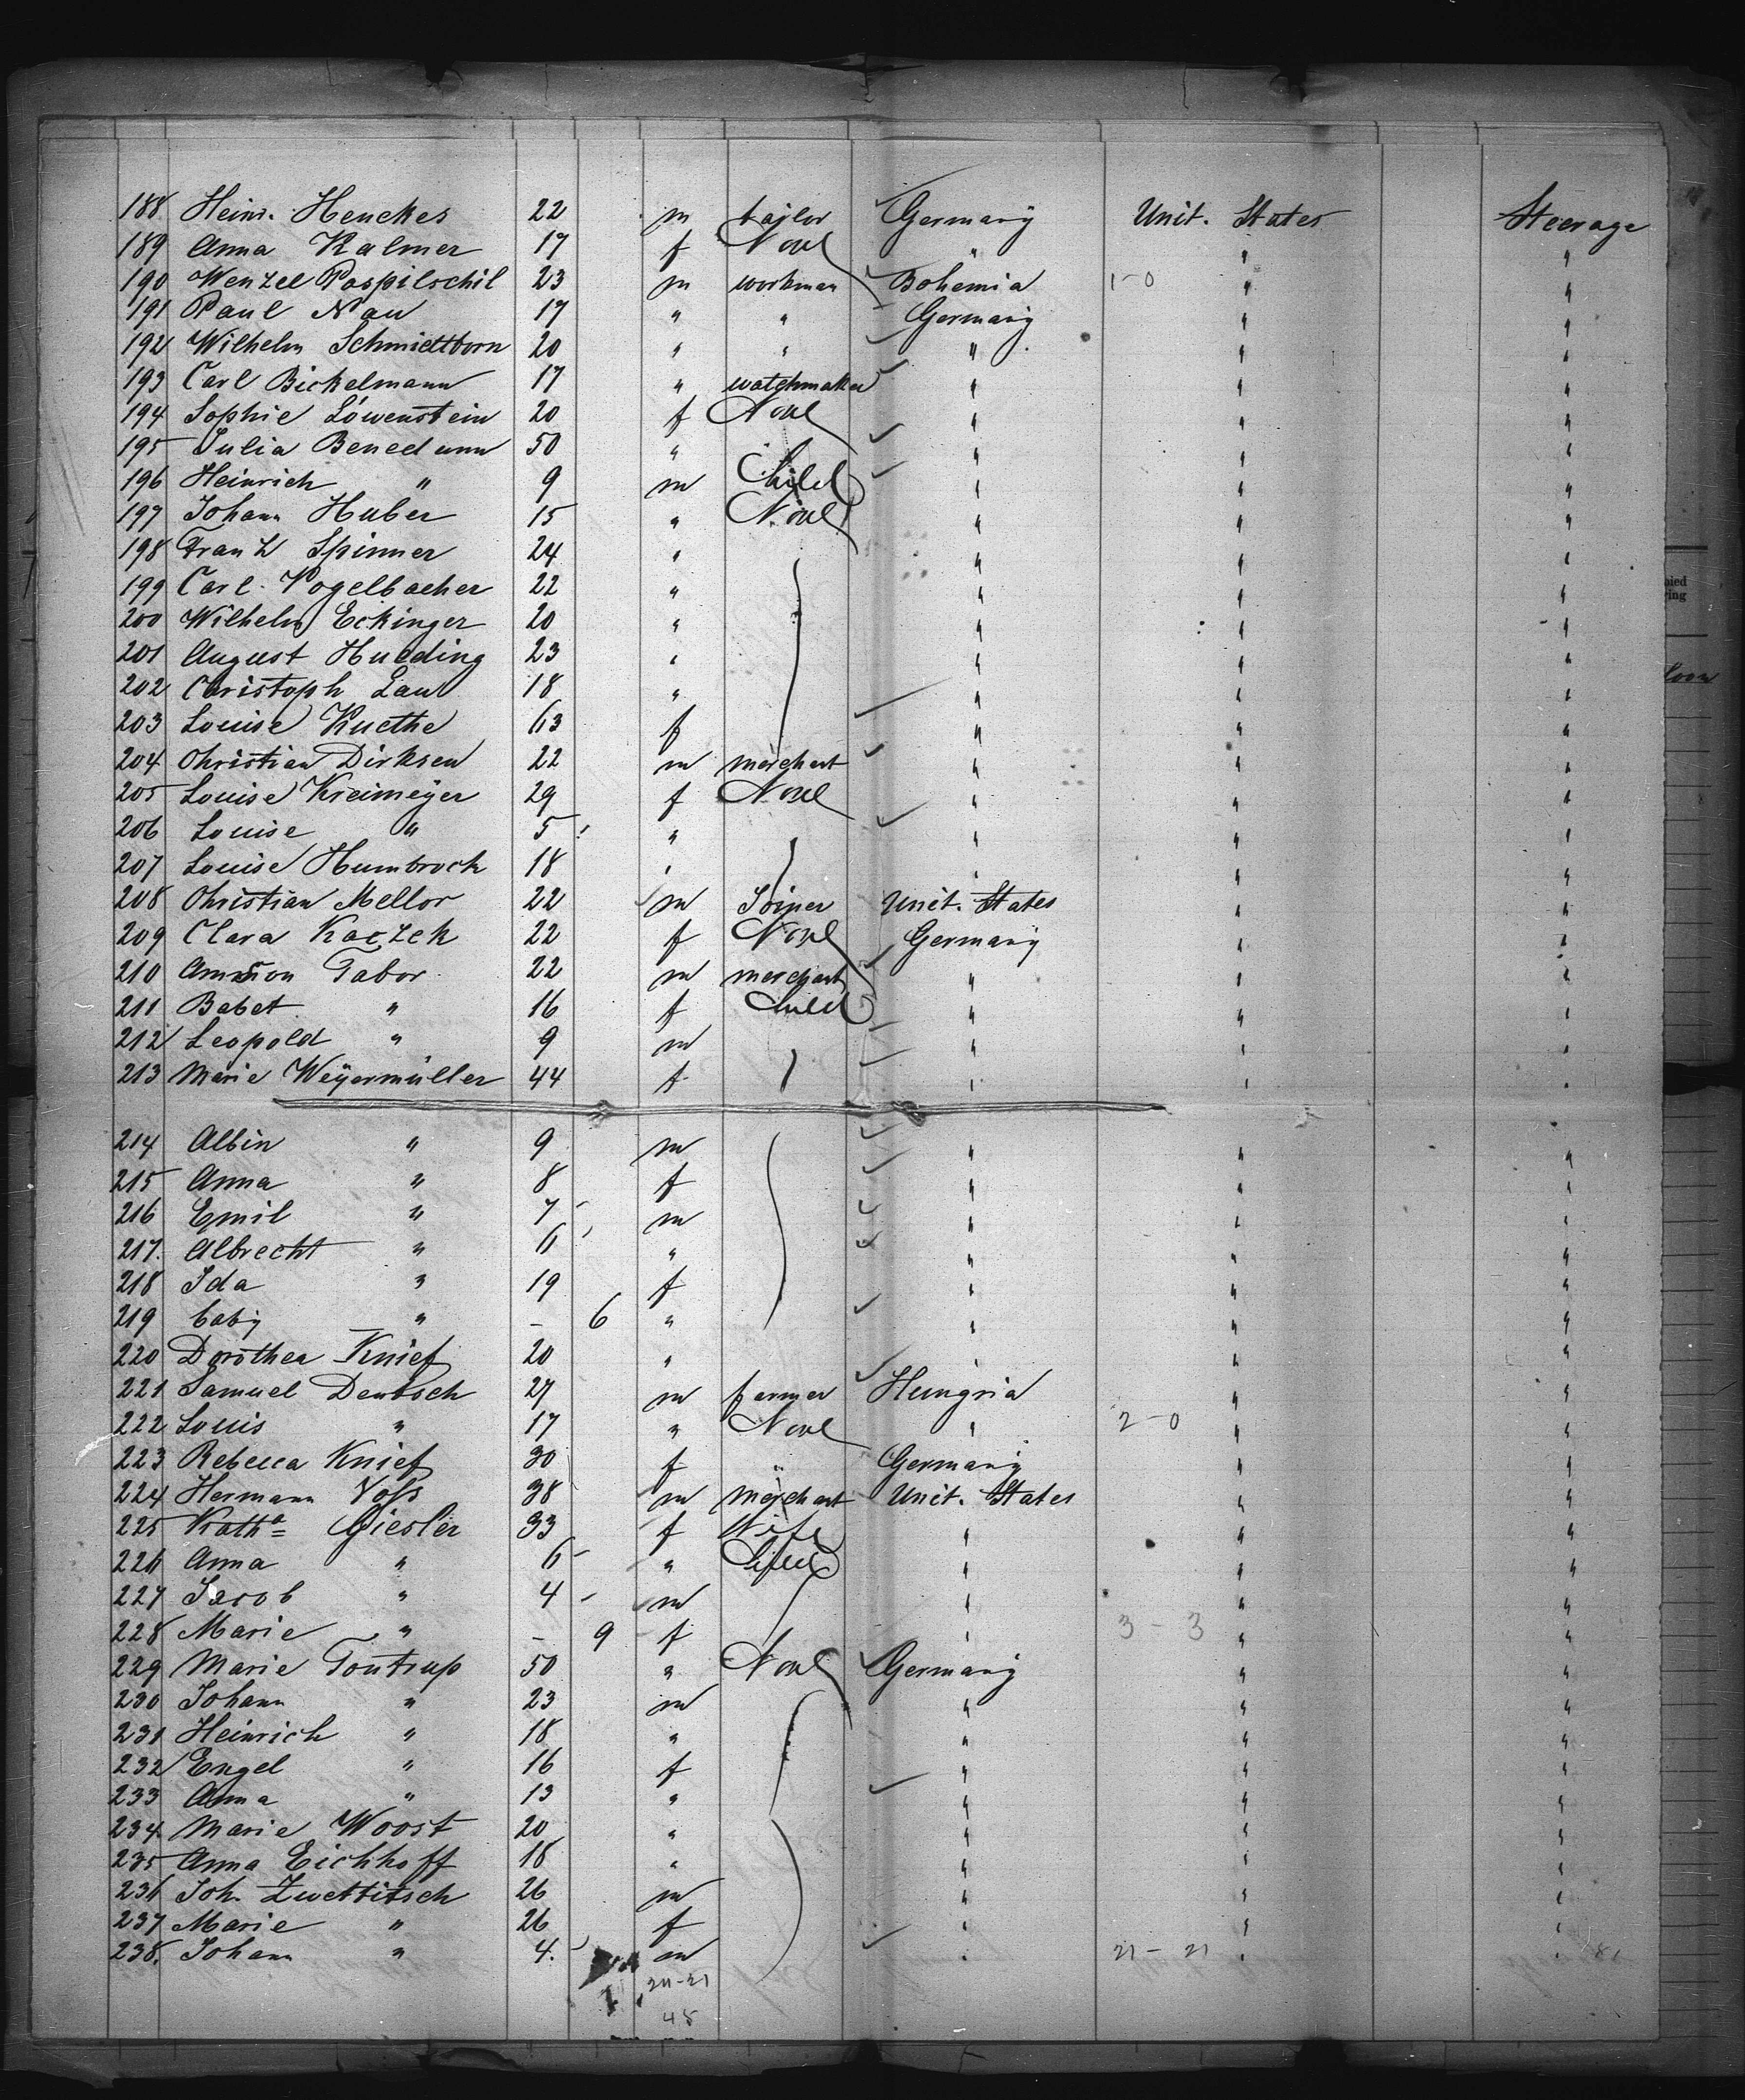 188. Heinr. Henckes 22 m tailor Germany Unit. States Steerage
189 Anna Kalmer 17 f None " " "
190 Wenzel Pospilschil 23 m workman Bohemia 1-0 " "
191 Paul Nau 17 " " Germany " "
192 Wilhelm Schmidtborn 20 " " " " "
193 Carl Bickelmann 17 " watchmaker " " "
194 Sophie Löwenstein 20 f None " " "
195 Julia Benedumm 50 " " " "
196 Heinrich " 9 m Child " " "
197 Johann Huber 15 " None " " "
198 Franz Spinner 24 " " " "
199 Carl Vogelbacher 22 " " " "
200 Wilhelm Eckinger 20 " " " "
201 August Hueding 23 " " " "
202 Christoph Lau 18 " " " "
203 Louise Kuethe 63 f " " "
204 Christian Dirksen 22 m merchant " " "
205 Louise Kreimeyer 29 f None " " "
206 Louise " 5 " " " "
207 Louise Humbrock 18 " " " "
208 Christian Mellor 22 m Joiner Unit. States " "
209 Clara Kaczek 22 f None Germany " "
210 Tabor 22 m merchant " " "
211 Babet " 16 f Child " " "
212 Leopold " 9 m " " "
213 Marie Weyermüller 44 f " " "
214 Albin " 9 m " " "
215 Anna " 8 f " " "
216 Emil " 7 m " " "
217. Albrecht " 6 " " " "
218 Ida " 19 f " " "
219 baby " – 6 " " " "
220 Dorothea Knief 20 " " " "
221 Samuel Deutsch 27 m farmer Hungria " "
222 Louis " 17 " None " 2-0 " "
223 Rebecca Knief 30 f " Germany " "
224 Hermann Voss 38 m merchant Unit. States " "
225 Kath<sup>a</sup> Giesler 33 f Wife " " "
226 Anna " 6 " Child " " "
227 Jacob " 4 m " " "
228 Marie " – 9 f " 3-3 " "
229 Marie Tontrup 50 " None Germany " "
230 Johann " 23 m " " "
231 Heinrich " 18 " " " "
232 Engel " 16 f " " "
233 Anna " 13 " " " "
234 Marie Woost 20 " " " "
235 Anna Eichhoff 18 " " " "
236 Joh. Zwettitsch 26 m " " "
237 Marie " 26 f " " "
238. Johann " 4. m " 21-21 " "